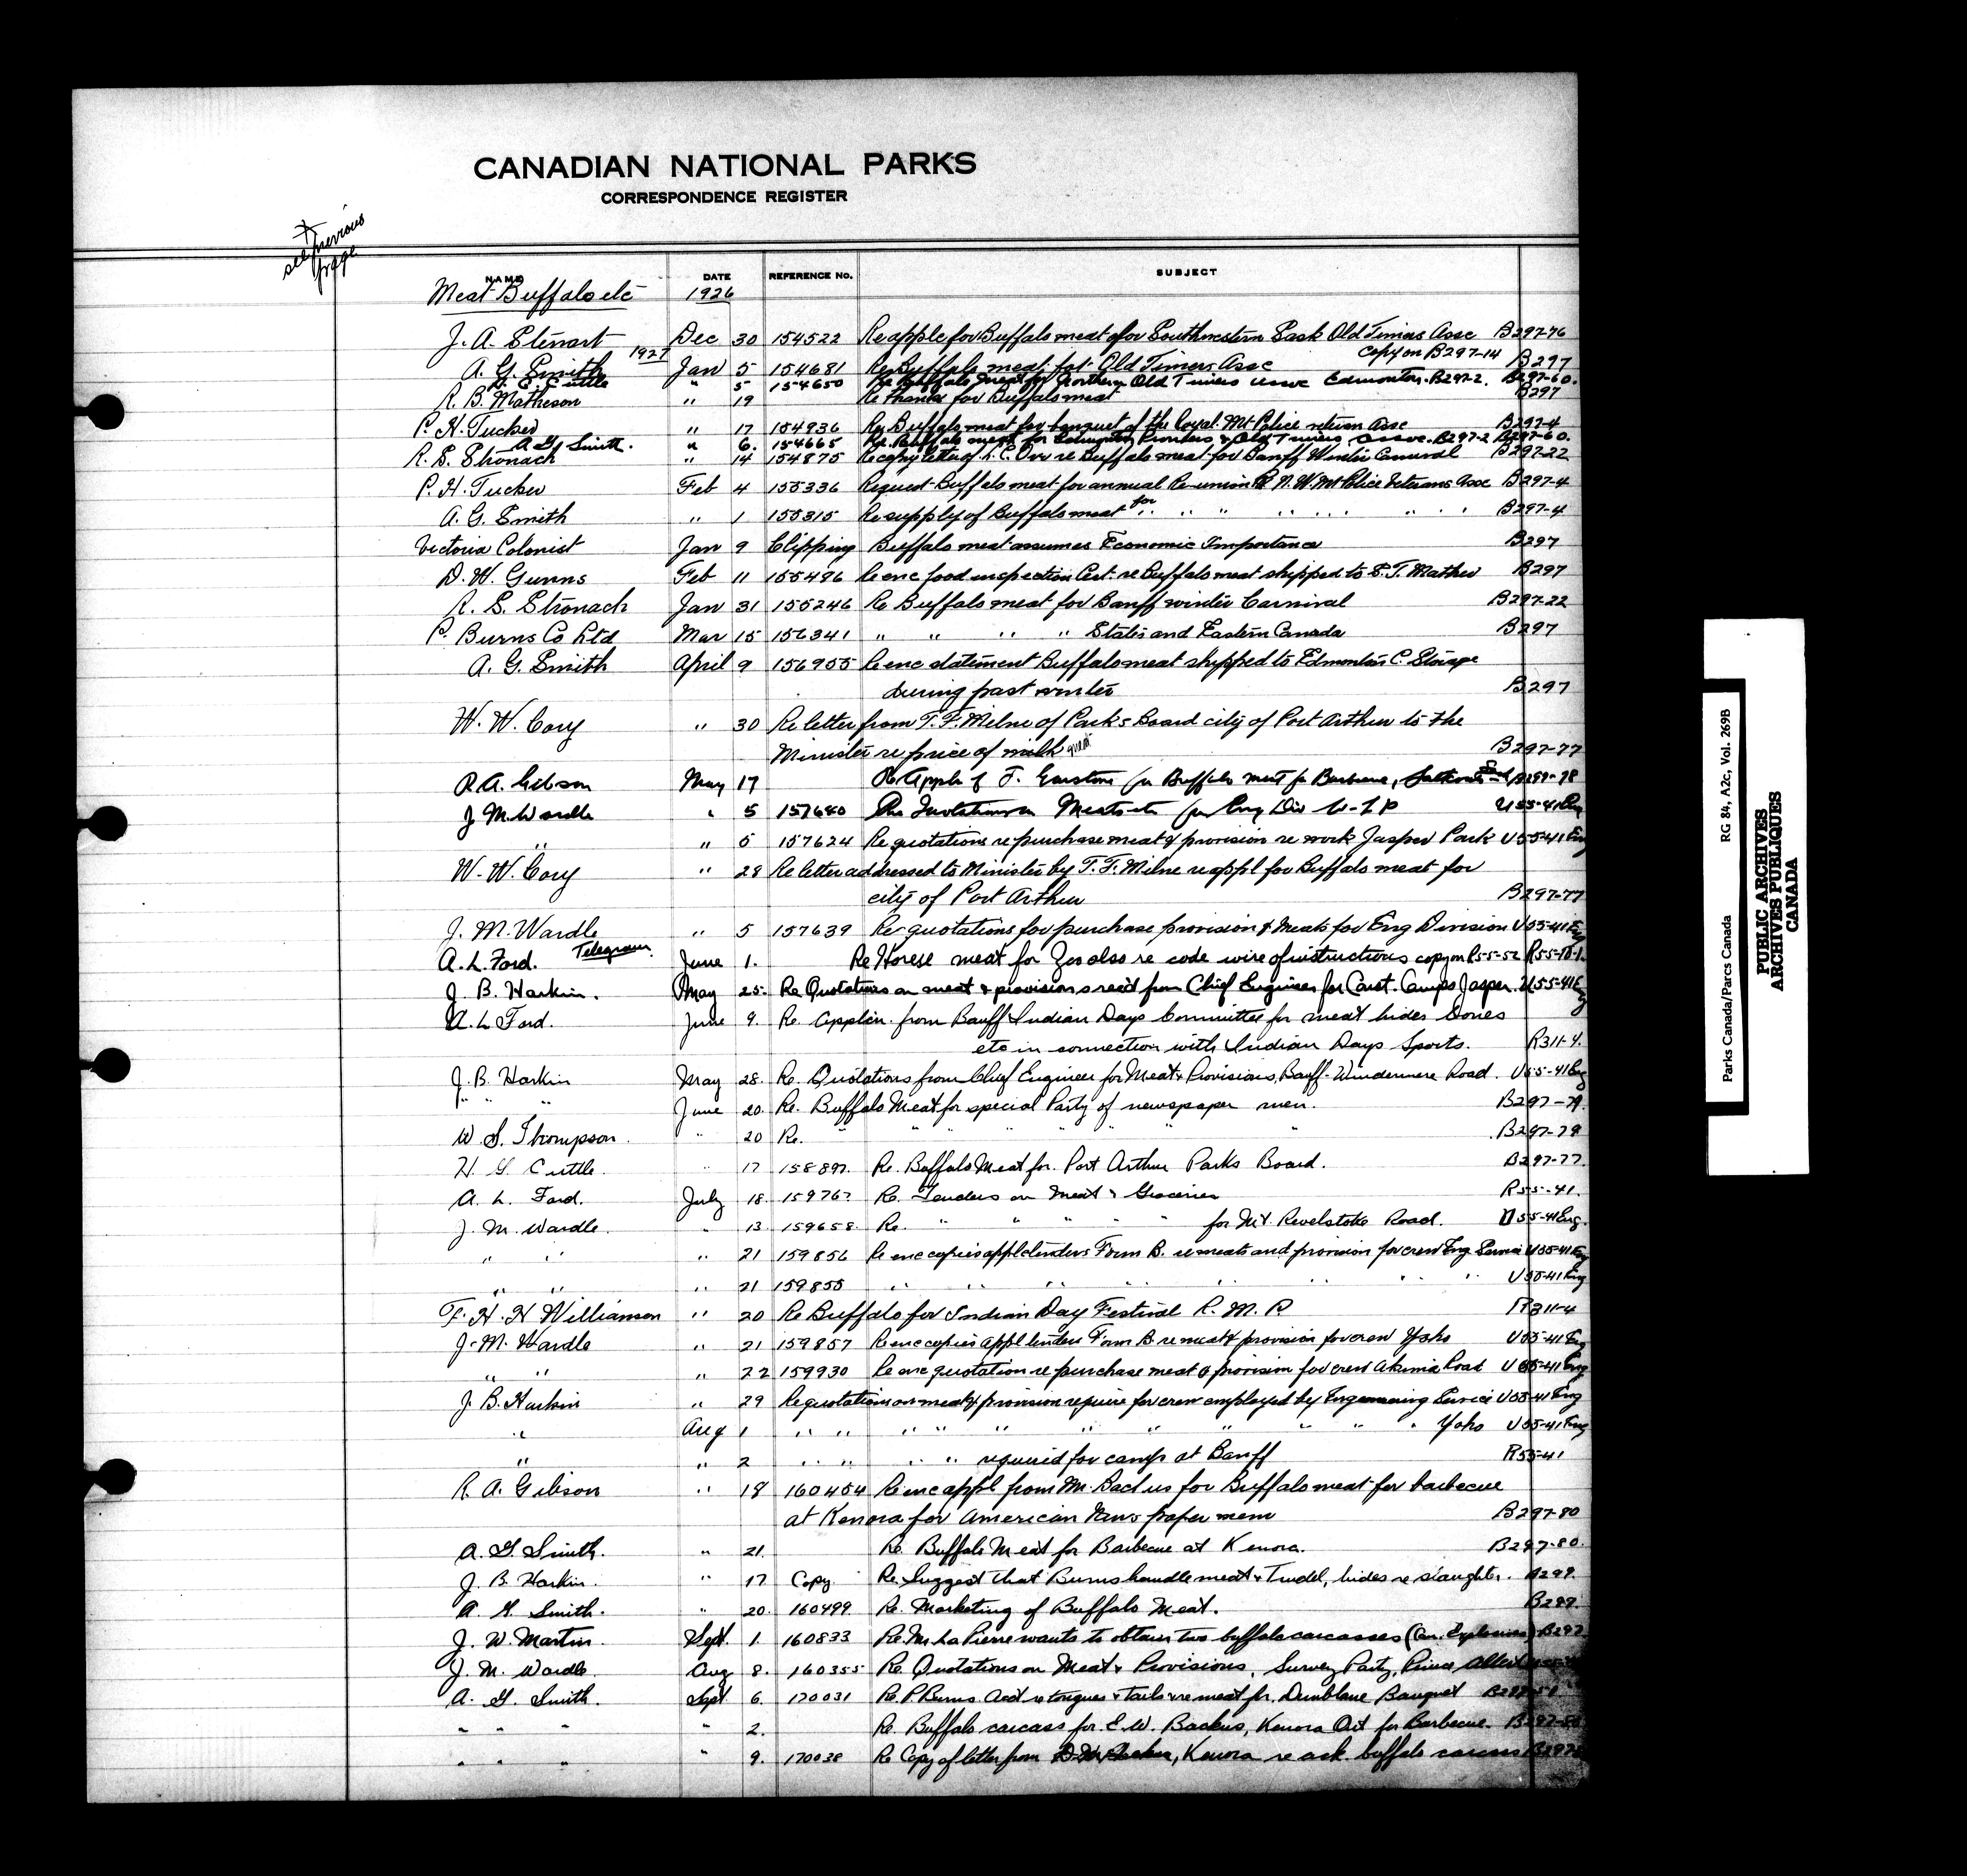 CANADIAN NATIONAL PARKS
CORRESPONDENCE REGISTER
see previous
page
NAME DATE REFERENCE No. SUBJECT
Meat Buffalo etc 1926
J. A. Stewart Dec 30 154522 Re apple for Buffalo meat for Southwestern Sask Old Timers Assc B297-76
1927 copy on B297-14
A. G. Smith Jan 5 154681 Re Buffalo meat for Old Timers Assc B297
Cuttle " 5 154650 Re Buffalo Meat for Northern Old Timers assoc Edmonton. B297-2. B297-60.
R. B. Matheson " 19 Re thanks for Buffalo meat B297
P. H. Tucker " 17 154936 Re Buffalo meat for banquet of the Royal. Mt Police Assc B297-4
A. G. Smith. " 6. 154665 Re. Buffalo meat for Edmonton Pioneers & Old Timers assoc. B297-2 B297-60.
R. S. Stronach " 14 154875 Re copy letter of re Buffalo meat for Banff Winter Carnival B297-22
P. H. Tucker Feb 4 155336 Request Buffalo meat for annual Re-union R. N. W. Mt Police Veterans Assc B297-4
A. G. Smith " 1 155315 Re supply of Buffalo meat for " " " " " " " " B297-4
Victoria Colonist Jan 9 Clipping Buffalo meat assumes Economic Importance B297
D. W. Gunns Feb 11 155496 Re enc food inspection Cert. re Buffalo meat shipped to S. T. Mather B297
R. S. Stronach Jan 31 155246 Re Buffalo meat for Banff winter Carnival B297-22
P. Burns Co Ltd Mar 15 156341 " " " " States and Eastern Canada B297
A. G. Smith April 9 156905 Re enc statement Buffalo meat shipped to Edmonton C. Storage
during past winter B297
W. W. Cory " 30 Re letter from T. F. Milne of Parks Board city of Port Arthur to the
Minister re price of milk meat B297-77
R. A. Gibson May 17 Re Apple of J. for Buffalo meat for Barbecue, B297-78
J. M. Wardle " 5 157640 Re Quotations on Meats etc for Eng Div W-L P U55-41 Eng
" " 5 157624 Re quotations re purchase meat & provision re work Jasper Park U55-41 Eng
W. W. Cory " 28 Re letter addressed to Minister by T. F. Milne re appl for Buffalo meat for
city of Port Arthur B297-77
J. M. Wardle " 5 157639 Re quotations for purchase provision & Meats for Eng Division U55-41 Eng
A. L. Ford. Telegram June 1. Re Horse meat for Zoo also re code wire of instructions copy on R55-52 R55-10-1.
J. B. Harkin. May 25. Re Quotations on meat & provisions rec'd from Chief Engineer for Const. Camps Jasper. U55-41 Eng
A. L Ford. June 9. Re. Applcn. from Banff Indian Days Committee for meat hides bones
etc in connection with Indian Days Sports. R311-4.
J. B. Harkin May 28. Re. Quotations from Chief Engineer for Meat & Provisions, Banff-Windermere Road. U55-41 Eng
" " June 20. Re. Buffalo Meat for special Party of newspaper men. B297-79.
W. S. Thompson. " 20 Re. " " " " " " B297-79
H. G. Cuttle. " 17 158897. Re. Buffalo Meat for Port Arthur Parks Board. B297-77.
A. L. Ford. July 18. 159767 Re. Tenders on Meat & Groceries R55-41.
J. M. Wardle. " 13. 159658. Re. " " " " for Mt Revelstoke Road. U55-41 Eng.
" " " 21 159856 Re enc copies appl tenders Form B. re meats and provision for crew Eng Service U55-41 Eng
" " " 21 159855 " " " " " " " " U55-41 Eng
F. H. H Williamson " 20 Re Buffalo for Indian Day Festival R. M. P. R311-4
J. M. Wardle " 21 159857 Re enc copies appl tenders Form B. re meat & provision for crew Yoho U55-41 Eng
" " " 22 159930 Re enc quotation re purchase meat & provision for crew Akamina Road U55-41 Eng
J. B. Harkin " 29 Re quotations on meat & provision require for crew employed by Engineering Service U55-41 Eng
" Aug 1 " " " " " " " " " " Yoho U55-41 Eng
" " 2 " " " " required for camps at Banff R55-41
R. A. Gibson " 18 160454 Re enc appl from Mr. Backus for Buffalo meat for barbecue
at Kenora for American News paper men B297-80
A. G. Smith. " 21. Re. Buffalo Meat for Barbecue at Kenora. B297-80.
J. B. Harkin. " 17 Copy Re. Suggest that Burns handle meat & Trudel, hides re slaughter. B299.
A. G. Smith. " 20. 160499 Re. Marketing of Buffalo Meat. B299.
J. W. Martin. Sept. 1. 160833 Re. Mr La Pierre wants to obtain two buffalo carcasses (Can. Explosives) B297
J. M. Wardle. Aug 8. 160355 Re. Quotations on Meat & Provisions, Survey Party, Prince Albert
A. G. Smith. Sept 6. 170031 Re. P. Burns acct re tongues & tails & re meat for Dunblane Banquet
" " " " 2. Re. Buffalo carcass for E. W. Backus, Kenora Ont for Barbecue. B297-80
" " " " 9. 170038 Re Copy of letter from Kenora re ack. buffalo carcass
PUBLIC ARCHIVES
ARCHIVES PUBLIQUES
CANADA
Parks Canada/Parcs Canada RG 84, A2c, Vol. 269B